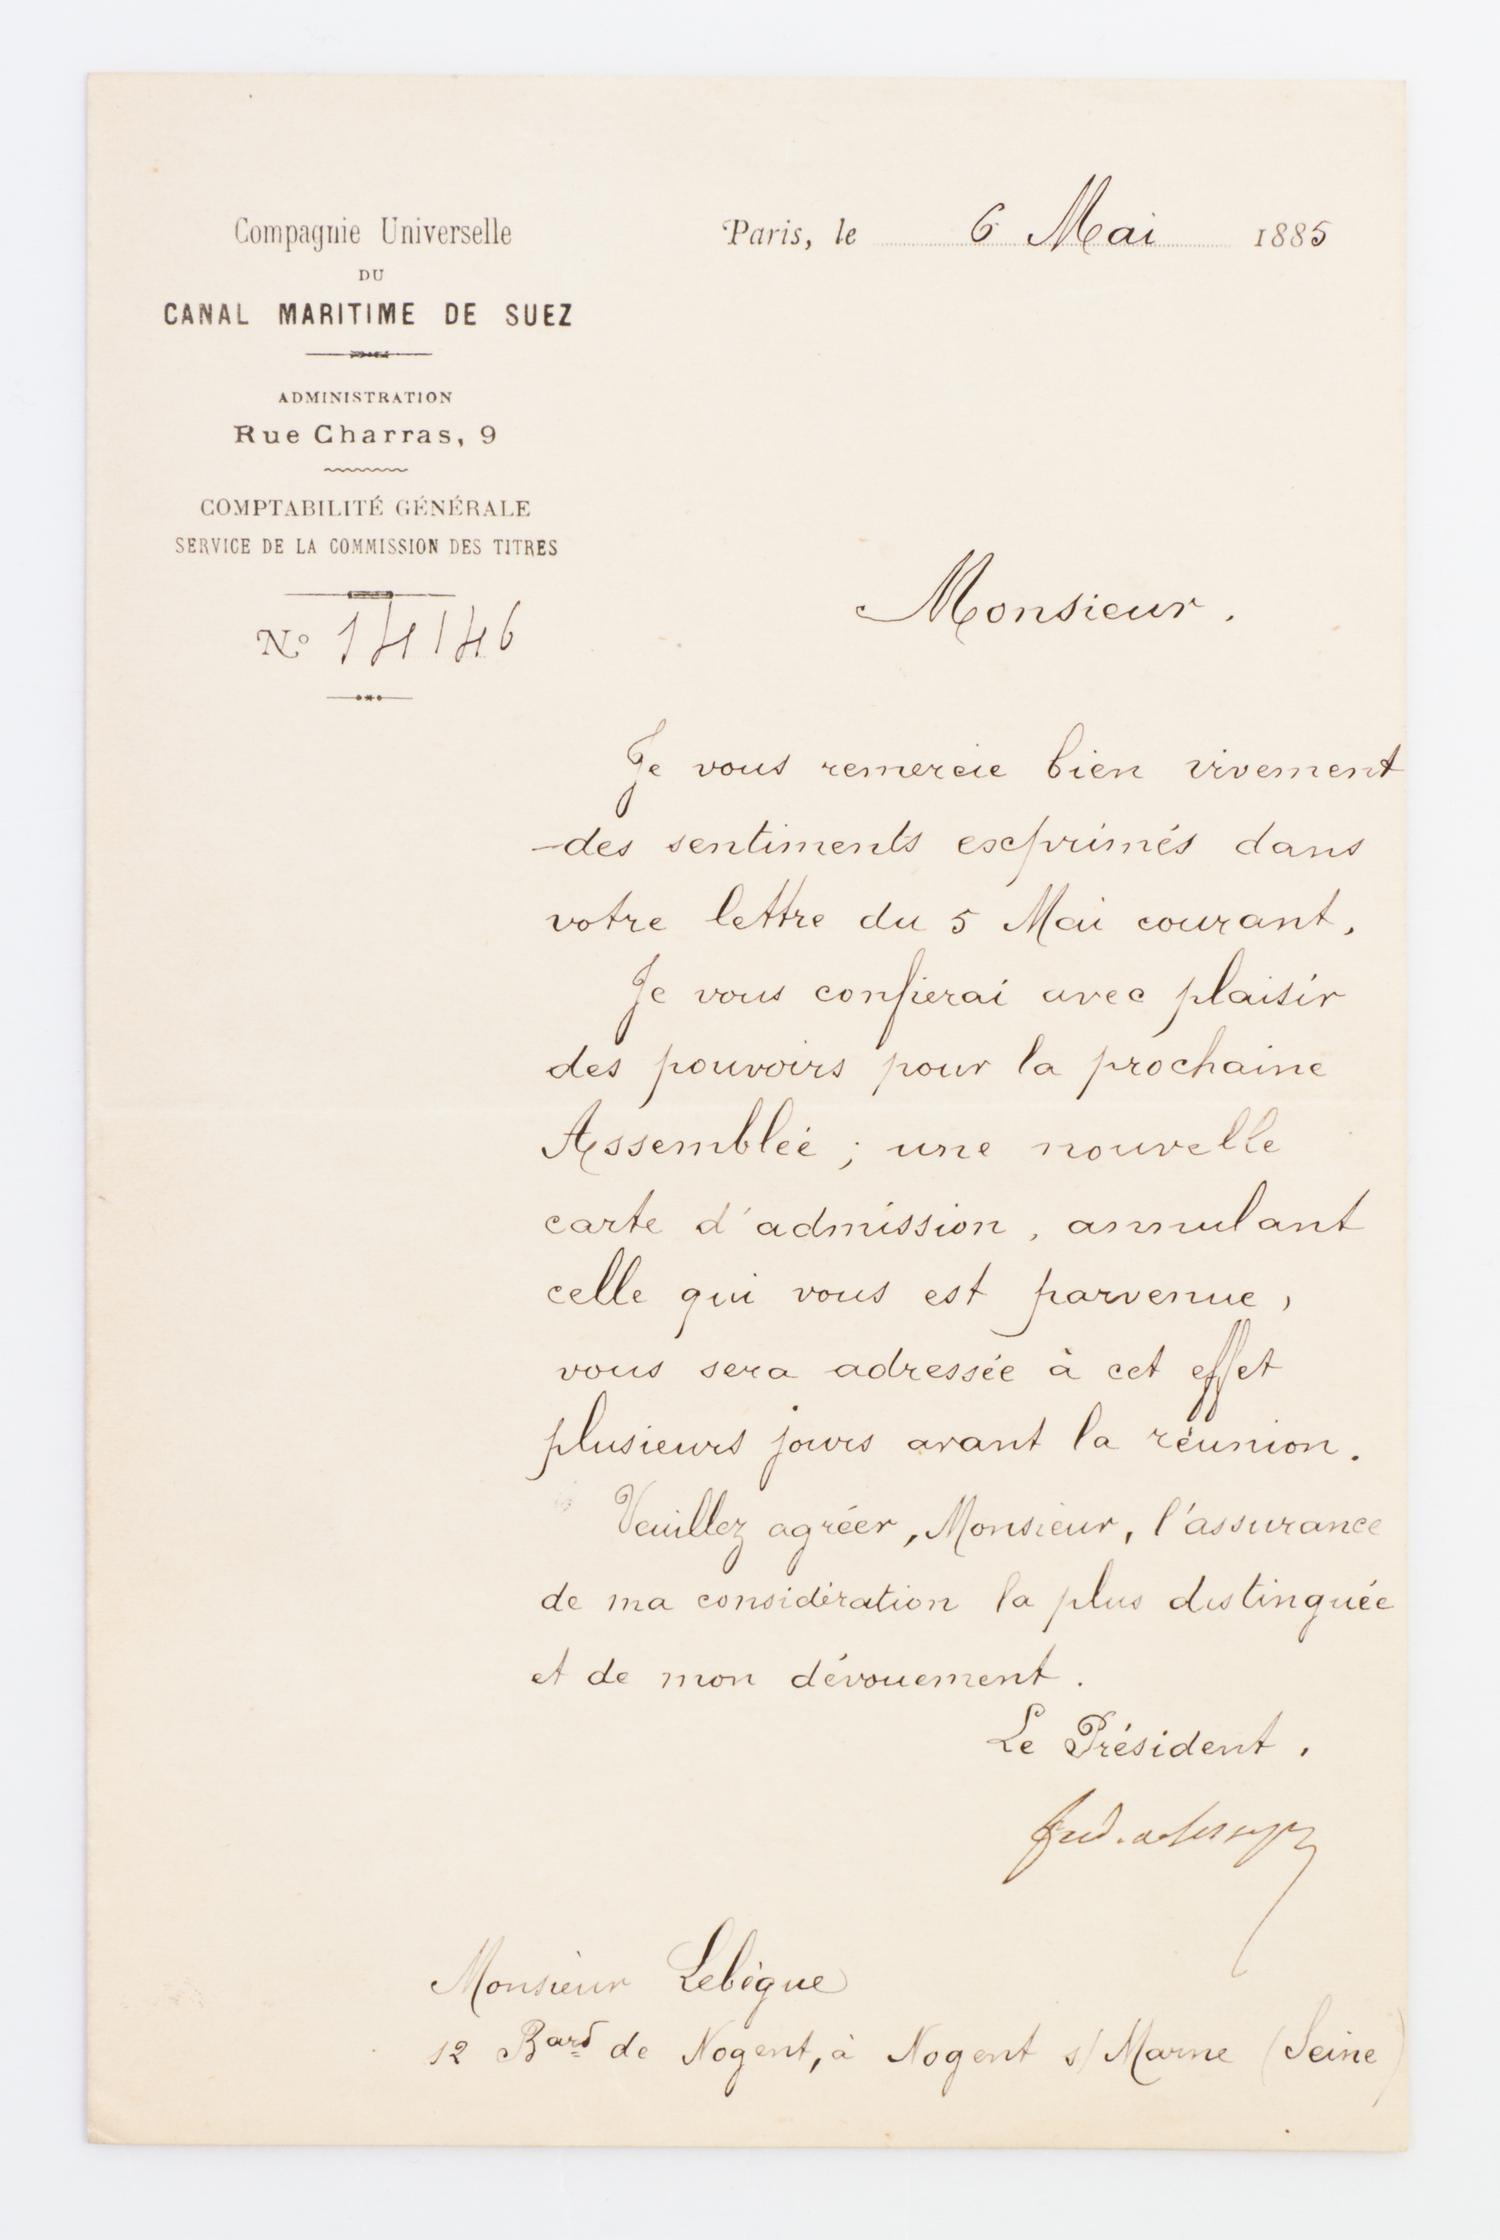 Compagnie Universelle
DU
CANAL MARITIME DE SUEZ
ADMINISTRATION
Rue Charras, 9
COMPTABILITÉ GÉNÉRALE
SERVICE DE LA COMMISSION DES TITRES
Nº 14146
Paris, le 6 Mai 1885
Monsieur.
Je vous remercie bien vivement
des sentiments exprimés dans
votre lettre du 5 Mai courant.
Je vous confierai avec plaisir
des pouvoirs pour la prochaine
Assemblée ; une nouvelle
carte d'admission, annulant
celle qui vous est parvenue,
vous sera adressée à cet effet
plusieurs jours avant la réunion.
Veuillez agréer, Monsieur, l'assurance
de ma considération la plus distinguée
et de mon dévouement.
Le Président,
Ferd. de Lesseps
Monsieur Lebègue
12 Bard de Nogent, à Nogent s/ Marne (Seine)